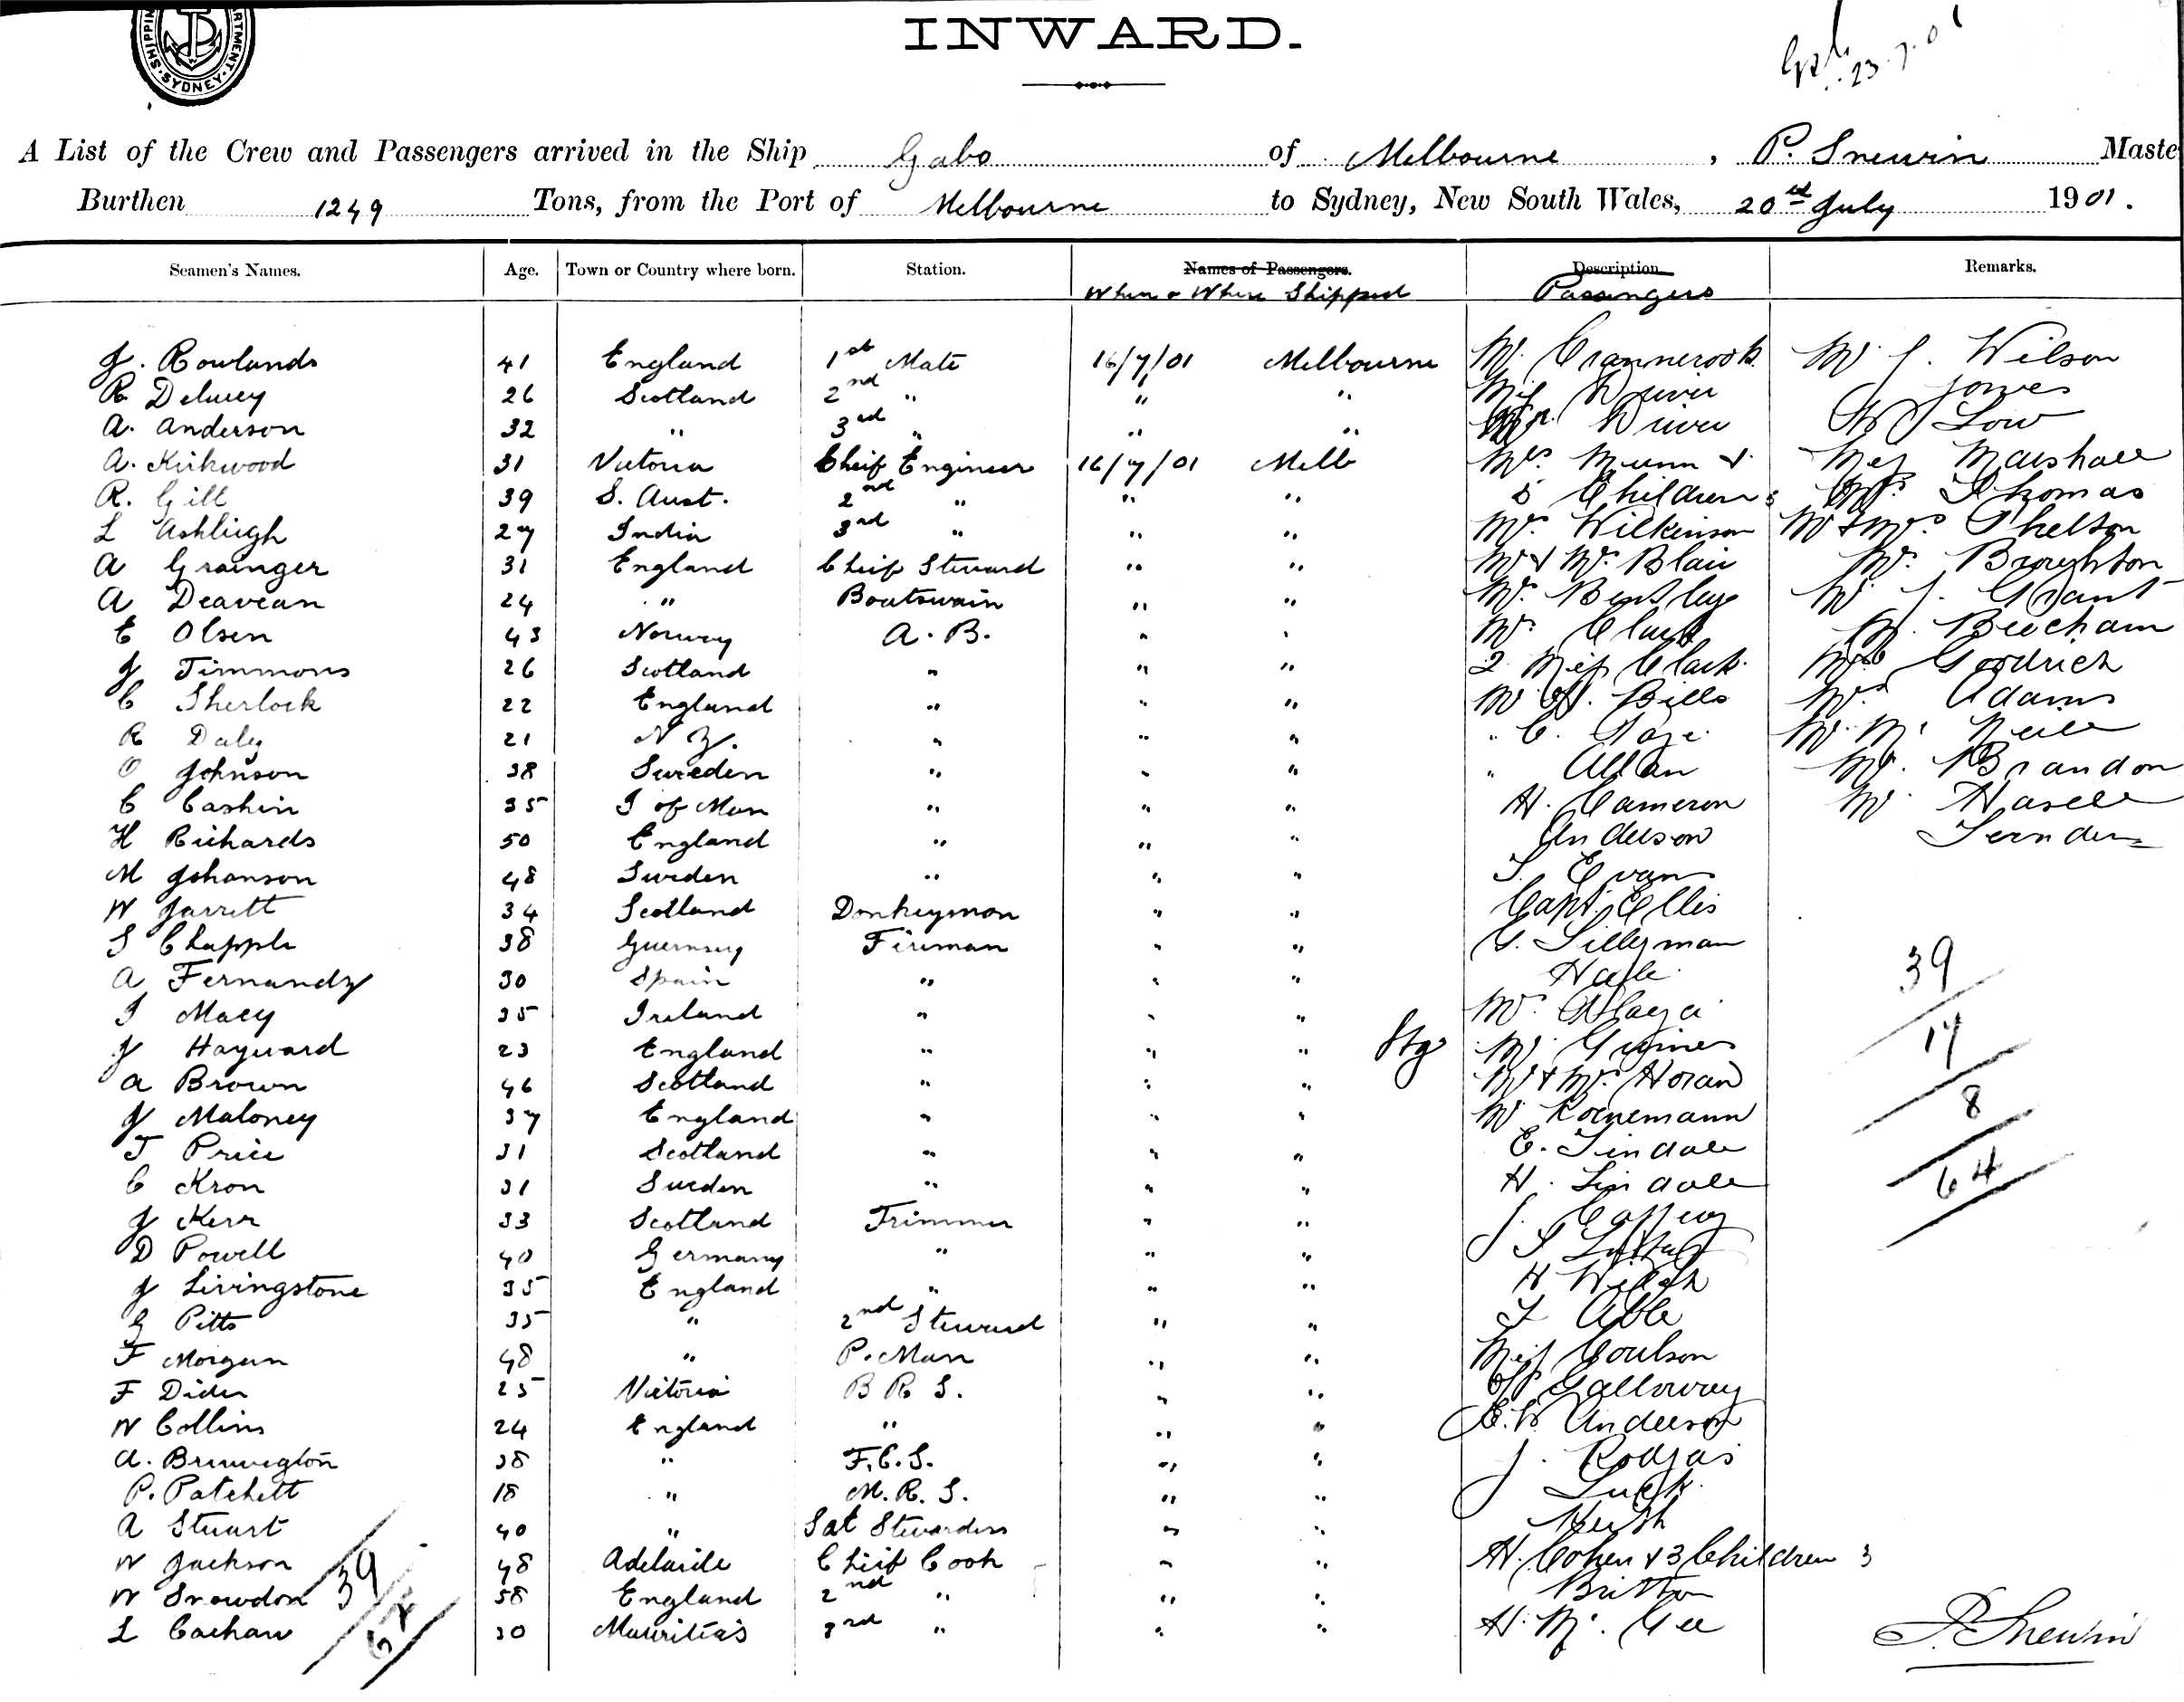 SHIPPING DEPARTMENT. SYDNEY.
INWARD.
23.7.01
A List of the Crew and Passengers arrived in the Ship Gabo of Melbourne, P. Snewin Maste
Burthen 1249 Tons, from the Port of Melbourne to Sydney, New South Wales, 20th July 1901.
Seamen's Names. Age. Town or Country where born. Station. Names of Passengers. Description Remarks.
When & Where Shipped Passengers
J. Rowlands 41 England 1st Mate 16/7/01 Melbourne Mr. Mr. J. Wilson
R 26 Scotland 2nd " " " Miss Driver Jones
A. Anderson 32 " 3rd " " " Driver Low
A. Kirkwood 31 Victoria Cheif Engineer 16/7/01 Melb Mrs. Munn & Miss Marshall
R. Gill 39 S. Aust. 2nd " " " 5 Children 5 Thomas
L Ashleigh 27 India 3rd " " " Mr. Wilkinson Mr & Mrs Phelton
A Grainger 31 England Cheif Steward " " Mr & Mrs Blair Mr. Broughton
A Deavean 24 " Boatswain " " Mr. Bentley Mr J. Grant
E Olsen 43 Norway A.B. " " Mr. Clark Beecham
J Timmons 26 Scotland " " " 2 Miss Clark. Goodrich
C Sherlock 22 England " " " Mr H. Bills Mrs Adams
R Daly 21 N Z. " " " " C. Page Mr. Mc Neill
O Johnson 38 Sweden " " " " Allan Mr. Brandon
C Cashin 35 I of Man " " " H. Cameron Mr. Hasell
H Richards 50 England " " " Anderson
M Johanson 48 Sweden " " " S. Evans
W Jarrett 34 Scotland Donkeyman " " Capt. Ellis
S Chapple 38 Guernsey Fireman " " G. Sillyman 39
A Fernandz 30 Spain " " " Hale
I Macy 35 Ireland " " " Mr. 17
J Hayward 23 England " " " Stg Mr. Grimes
A Brown 46 Scotland " " " Mr & Mrs. Horan 8
J Maloney 37 England " " " Mr Koenemann
T Price 31 Scotland " " " E. Tindale 64
C Kron 31 Sweden " " " H. Tindale
J Kerr 33 Scotland Trimmer " " J. Caffery
D Powell 40 Germany " " "
J Livingstone 35 England " " " H Welsh
G Pitts 35 " 2nd Steward " " Able
F Morgan 48 " P. Man " " Miss Coulson
F Dider 25 Victoria B R S. " " Galloway
W Collins 24 England " " " E. W. Anderson
A. 38 " F.C.S. " " J. Rodgers
P. Patchett 18 " M. R. S. " " J Luck.
A Stuart 40 " Sal Stewardess " " Keith
W Jackson 48 Adelaide Cheif Cook " " H. Cohen & 3 Children 3
W Snowdon 39 58 England 2nd " " " Britton
L 64 30 Mauritius 3rd " " " H. Mc. Gee P. Snewin